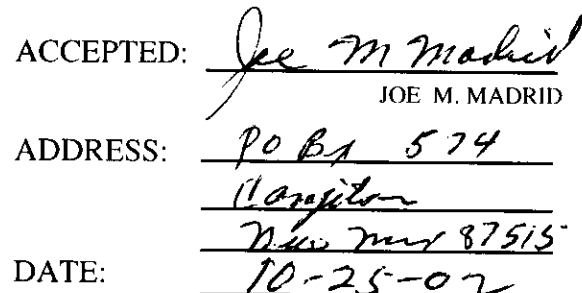 ACCEPTED: Joe M Madrid
JOE M. MADRID
ADDRESS: PO Bx 574
New Mex 87515
DATE: 10-25-02